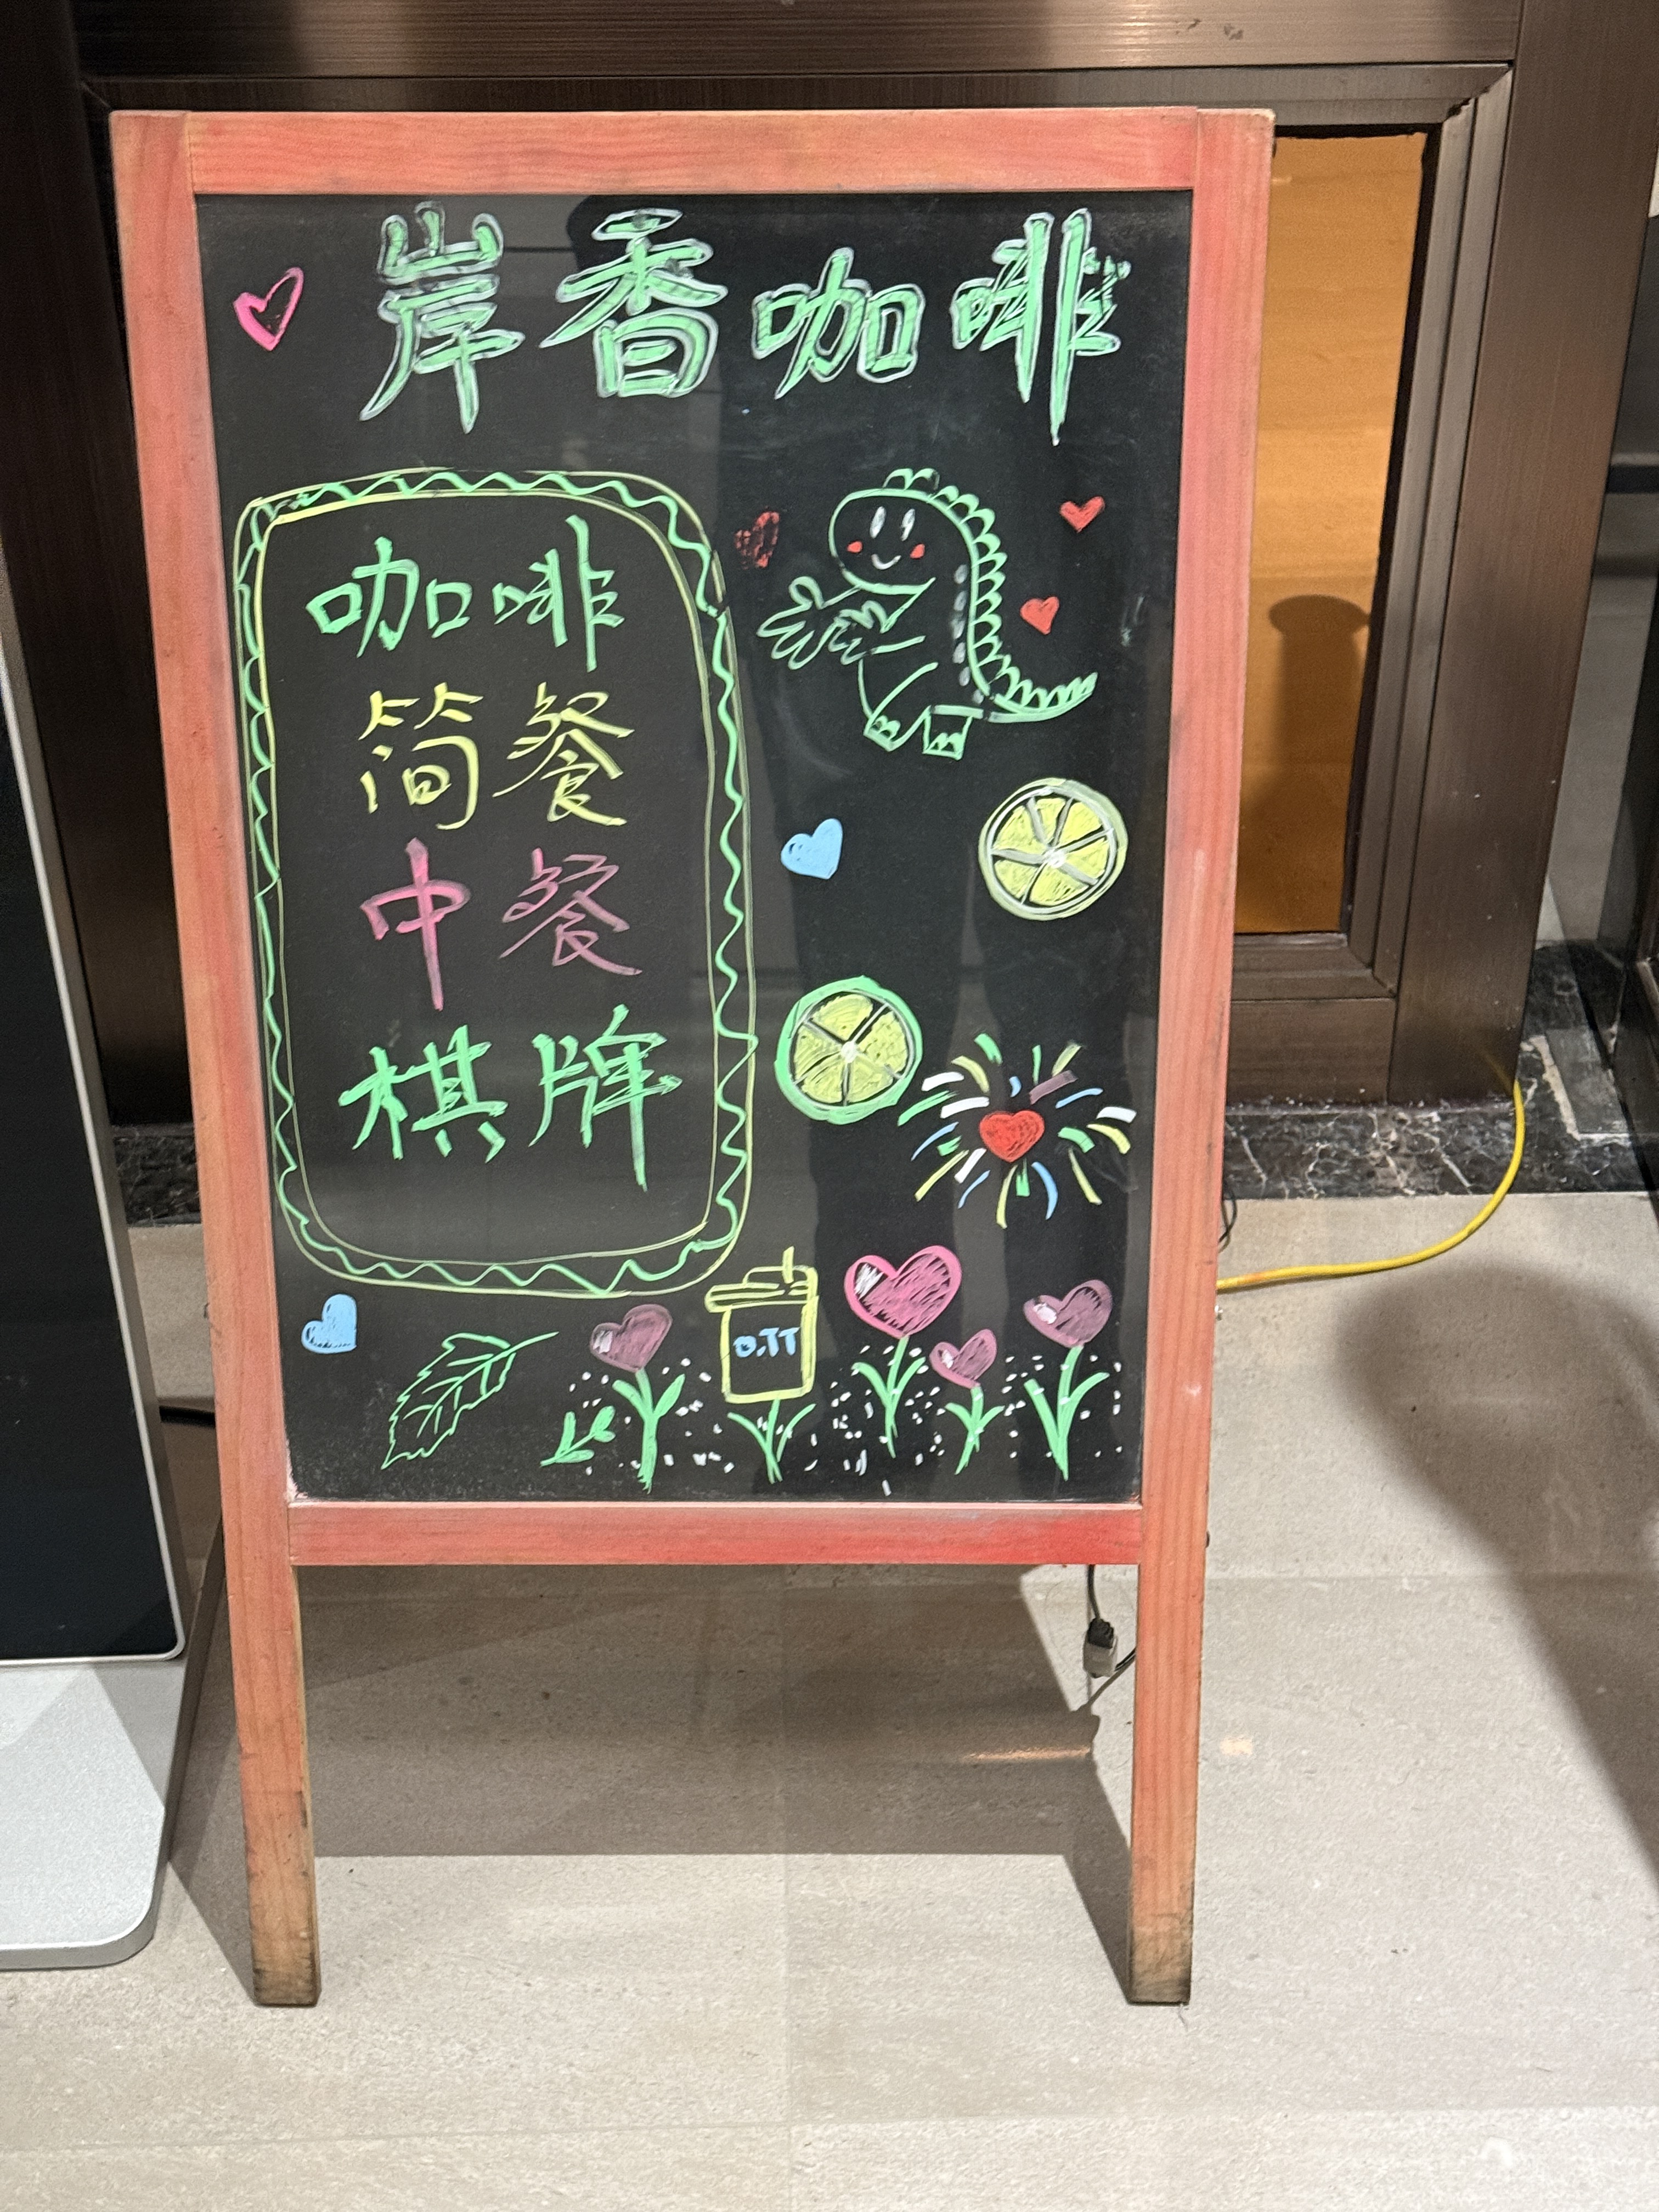 岸香咖啡
咖啡
简餐
中餐
棋牌
D.TT